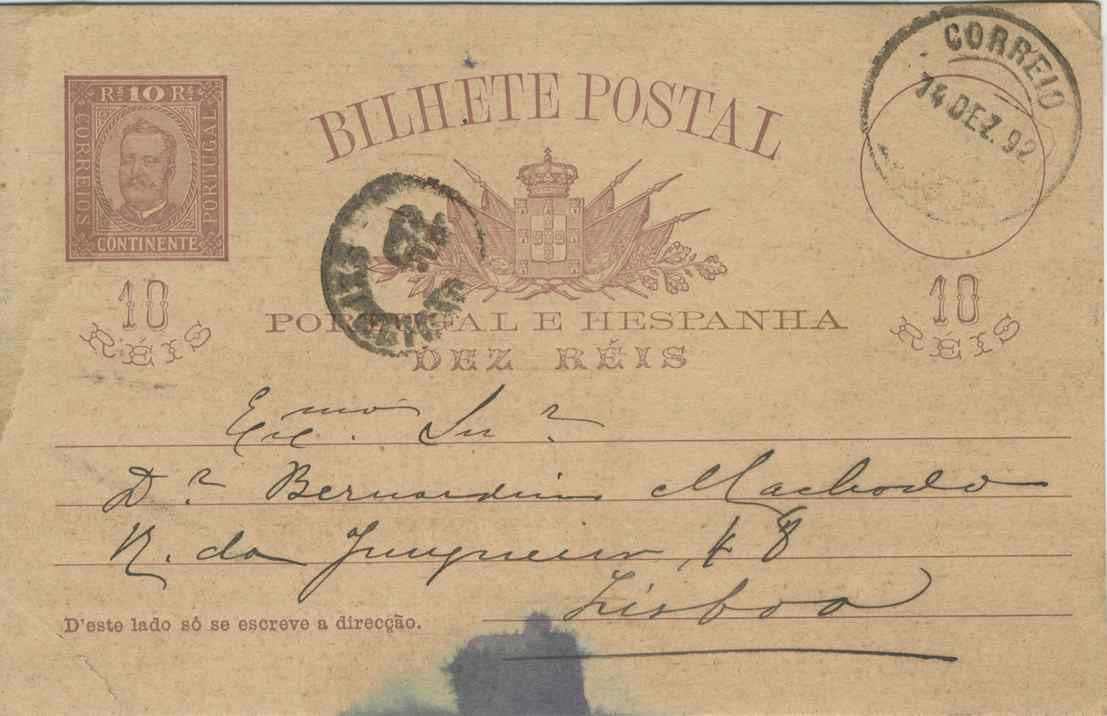 Rs 10 Rs
CORREIOS
PORTUGAL
CONTINENTE
10
RÉIS
BILHETE POSTAL
CORREIO
14 DEZ. 92
PORTUGAL E HESPANHA
DEZ RÉIS
10
RÉIS
Exmo. Snr
Dr Bernardino Machado
R. da Junqueira 8
Lisboa
D'este lado só se escreve a direcção.